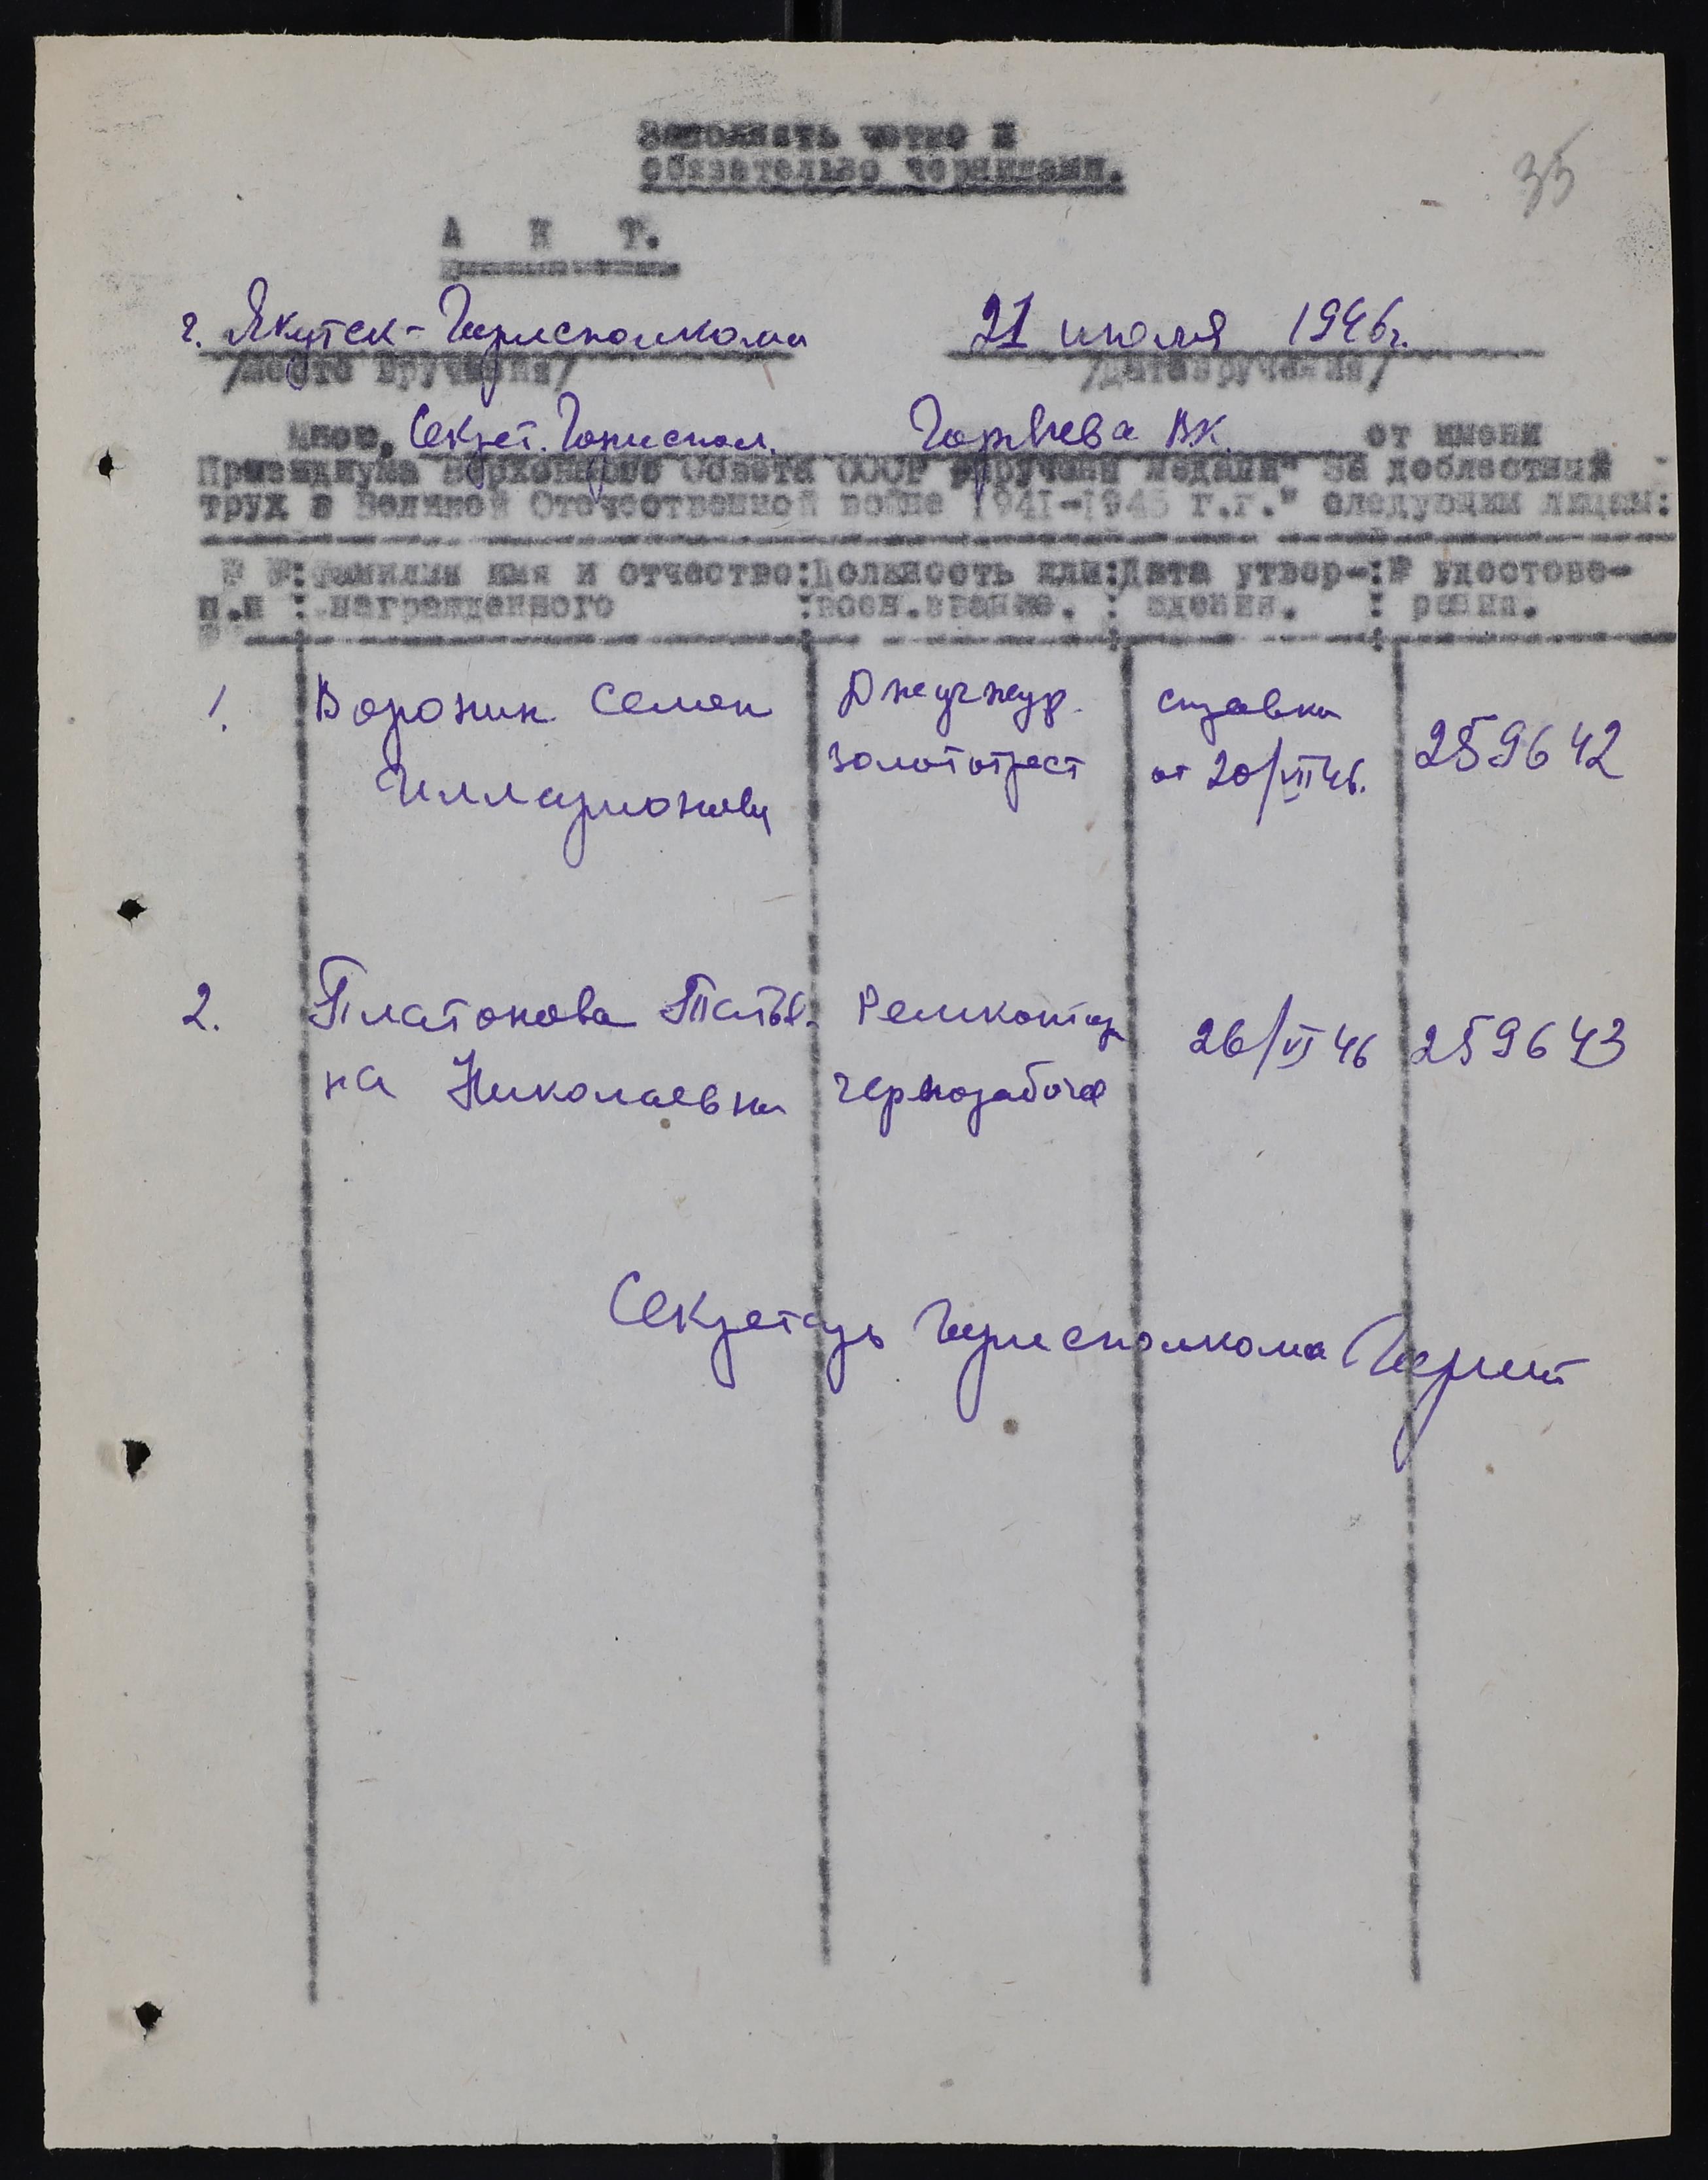 Заполнять четко и
обязательно чернилами.
35
А К Т.
г. Якутск - Горисполкома 21 июля 1946 г.
/место вручения/ /дата вручения/
Мною, Секрет. Гориспол. В.К. от имени
Президиума Верховного Совета СССР вручены медали "За доблестный
труд в Великой Отечественной войне 1941-1945 г.г." следующим лицам:
№ №:Фамилия имя и отчество:Должность или:Дата утвер-:№ удостове-
п.п : награжденного :воен.звание. : ждения. : рения.
1. Воронин Семен Джугжур. справка 259642
Илларионович золототрест от 20/VII 46.
2. Платонова Татья- Ремконтор 26/VI 46 259643
на Николаевна чернорабоч
Секретарь Горисполкома